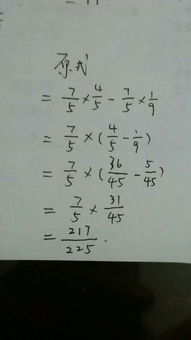 原式
= 7/5 × 4/5 - 7/5 × 1/9
= 7/5 × (4/5 - 1/9)
= 7/5 × (36/45 - 5/45)
= 7/5 × 31/45
= 217/225.